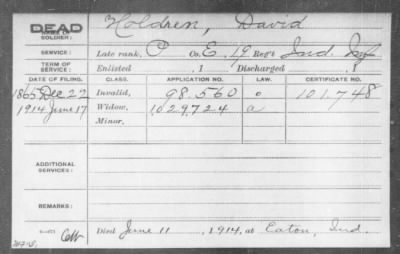 DEAD
NAME OF SOLDIER:
Holdren, David
SERVICE:
Late rank, P Co. E, 19 Reg't Ind. Inf
TERM OF SERVICE:
Enlisted , 1 Discharged , 8
DATE OF FILING. CLASS. APPLICATION NO. LAW. CERTIFICATE NO.
1865 Dec 22 Invalid, 98.560 o 101.748
1914 June 17 Widow, 1029724 a
Minor,
ADDITIONAL SERVICES:
REMARKS:
Died June 11, 1914, at Eaton, Ind.